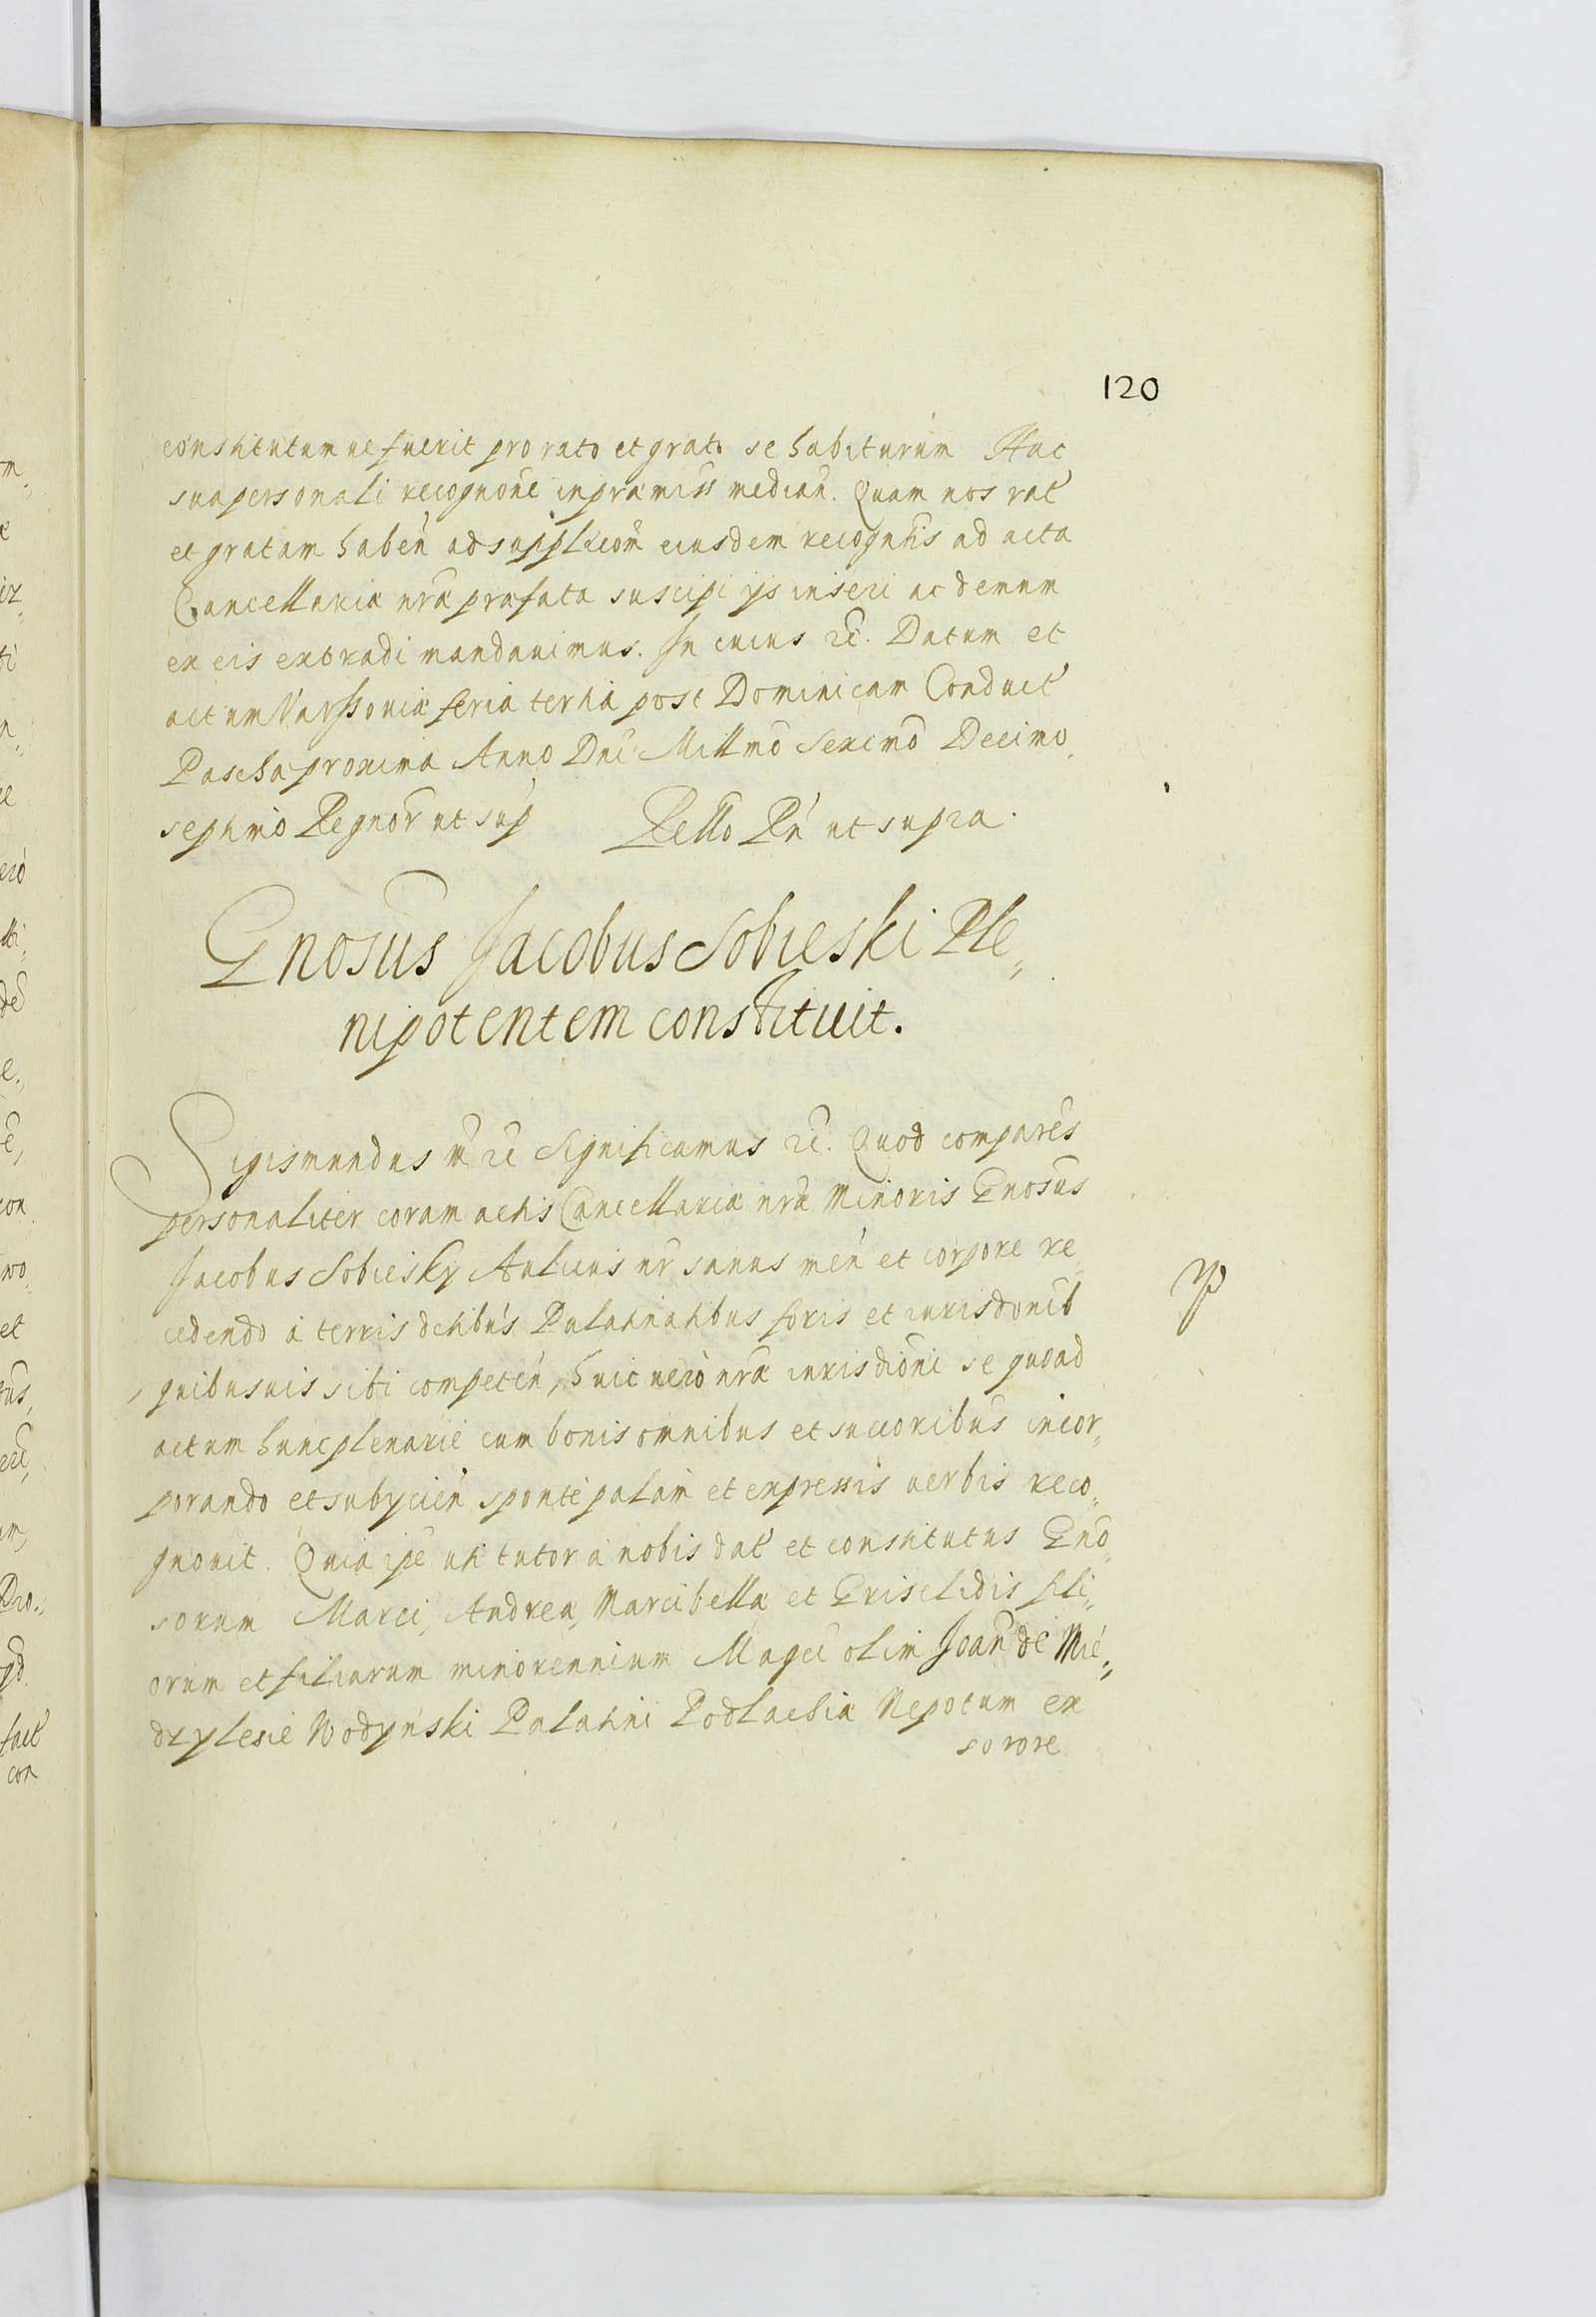 120
constitutum ue fuerit pro rato et grato se habiturum Hac
sua personali recognone in præmiss median. Quam nos rat
et gratam haben ad supplicaom eiusdem recogntis ad acta
Cancellariæ nræ præfata suscipi ijs inseri ac demum
ex eis extradi mandauimus. In cuius rei. Datum et
actum Varssouiæ feria tertia post Dominicam Conduct
Paschæ proxima Anno Dni Millmo Sexcmo Decimo
septimo Regnor ut sup Rello Rn ut supra.
Gnosus Jacobus Sobieski Ple„
nipotentem constituit.
Sigismundus III etc Significamus etc. Quod comparens
personaliter coram actis Cancellariæ nræ Minoris Gnosus
Jacobus Sobiesky Aulicus nr sanus men et corpore re„
cedendo à terris dctibus Palatinatibus foris et iurisdonib
quibusuis sibi competen, huic uerò nræ iurisdioni se quoad
actum hunc plenarie cum bonis omnibus et succoribus incor„
porando et subijcien sponte palam et expressis uerbis reco„
gnouit. Quia ipe uti tutor à nobis dat et constitutus Gno„
sorum Marci, Andreæ, Marcibellæ et Griselidis fili„
orum et filiarum minorennium Magci olim Joan de Mie„
dzylesie Wodynski Palatini Podlachiæ Nepotum ex
sorore